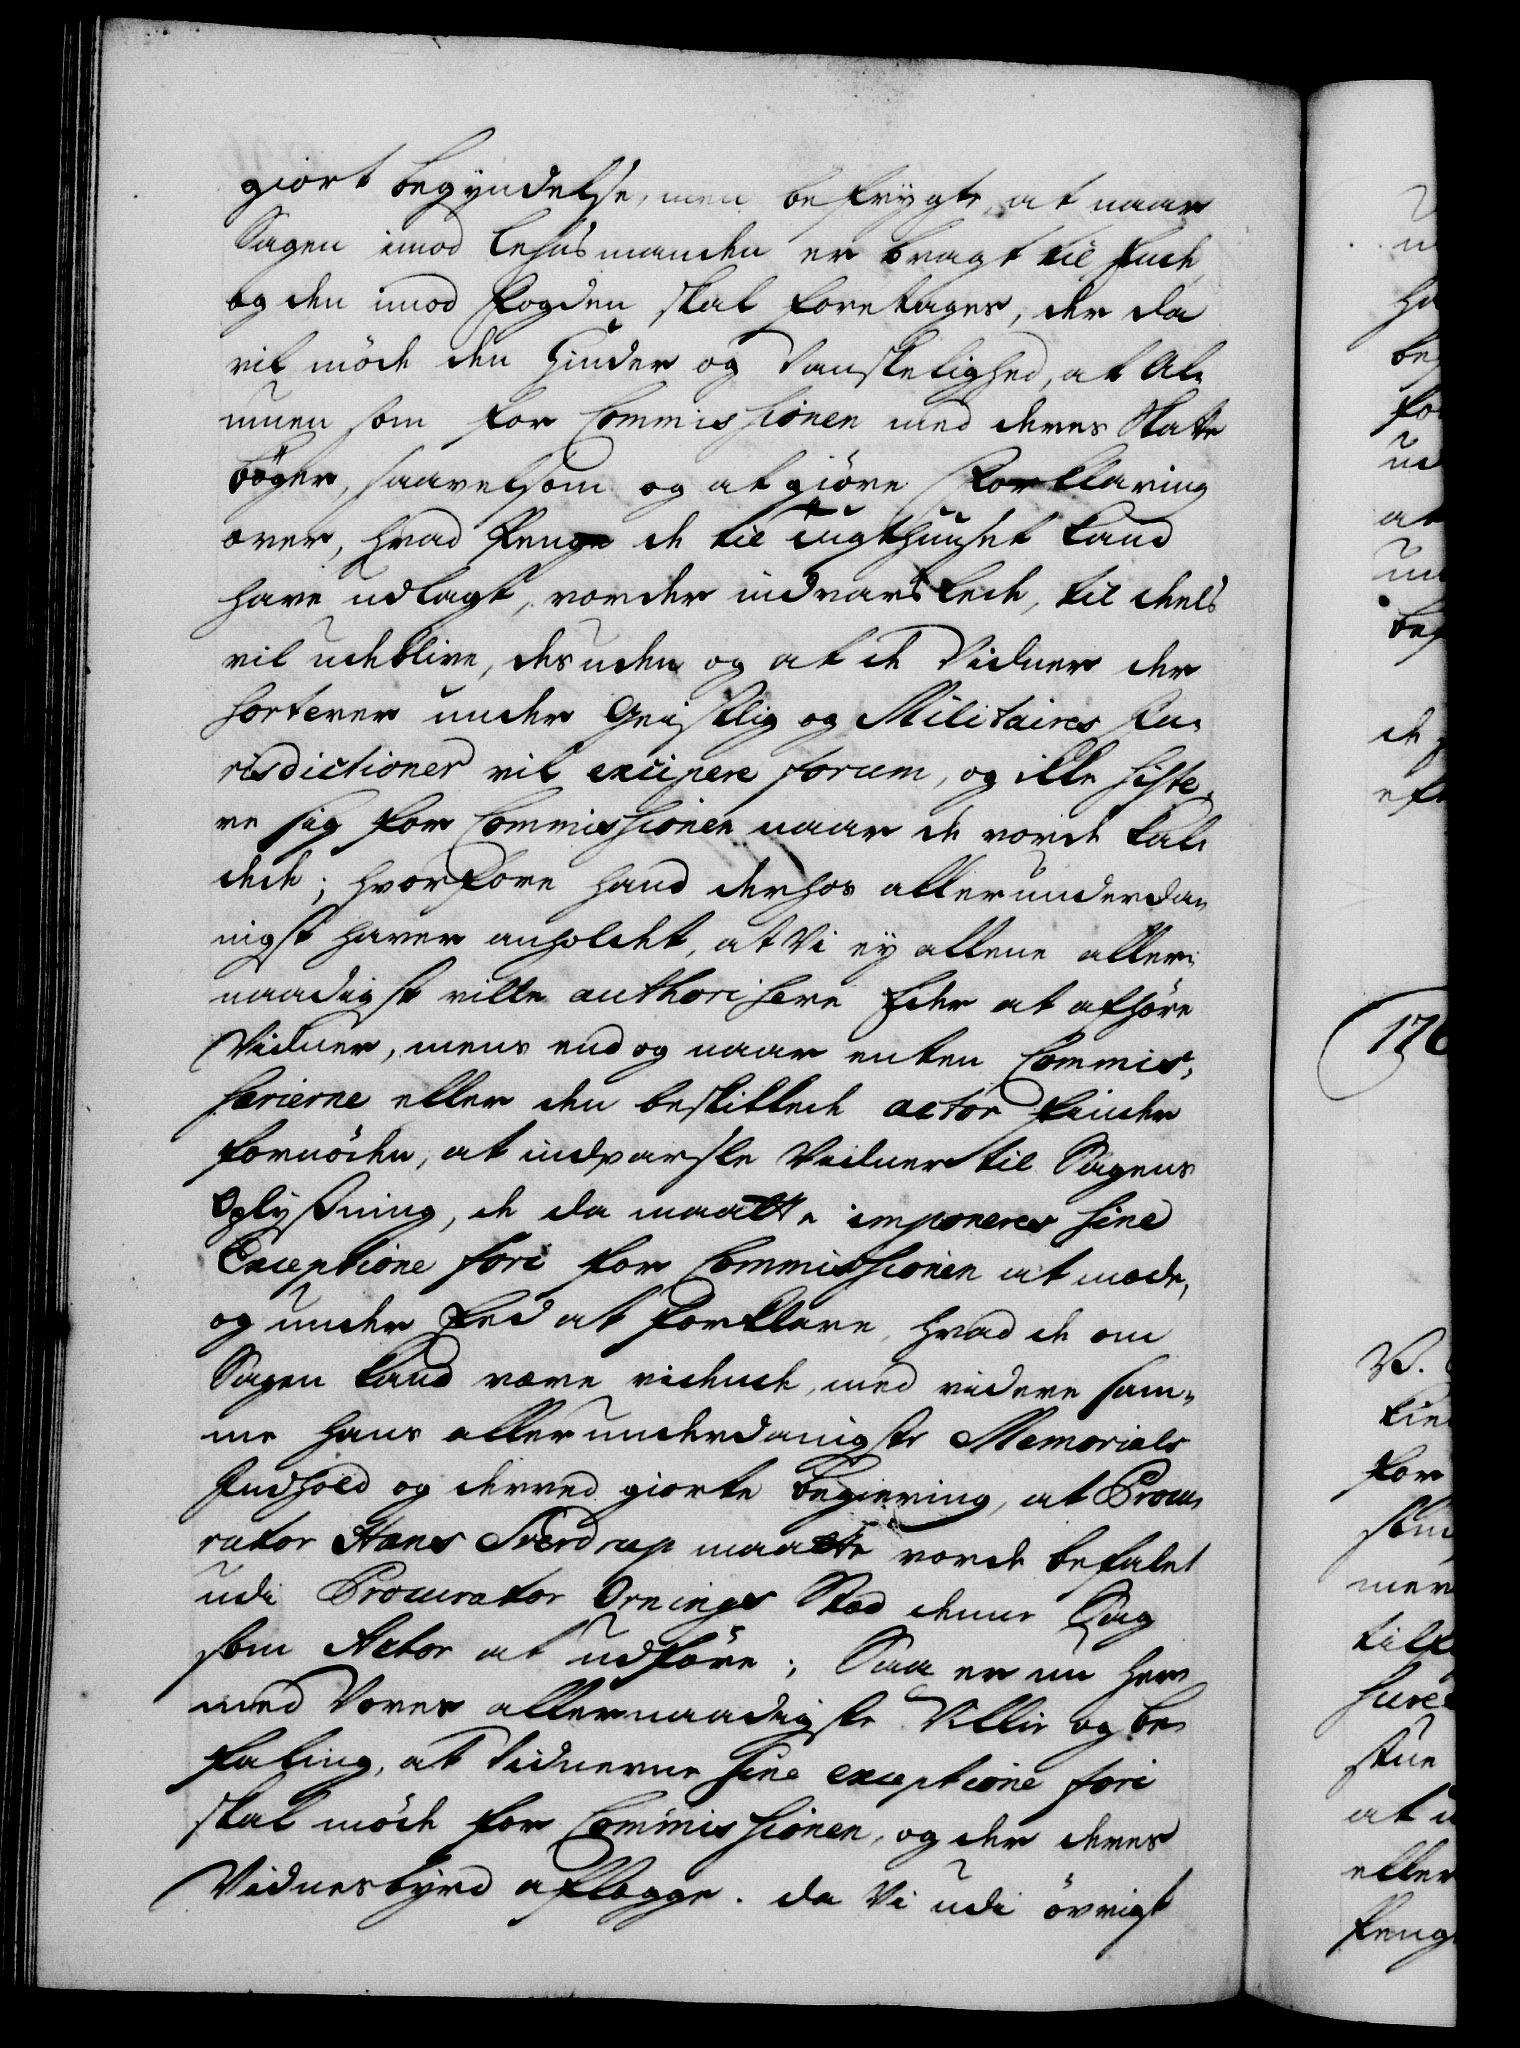 giort begyndelse, men befrygte, at naar
Sagen imod Lehnsmanden er bragt til Ende,
og den imod Fogden skal foretages, der da
vil møde den Hinder og Vanskelighed, at Al-
muen som for Commissionen med deres Skatte
bøger, saavelsom og at giøre Forklaring
over, hvad Penge de til Tugthuuset kand
have udlagt, vorder indvarslede, til deels
vil udeblive, desuden og at de Vidner der
sorterer under Geistlig og Militaires Ju-
risdictioner vil excipere forum, og ikke siste-
re sig for Commissionen naar de vorde kal-
dede; hvorfore hand derhos allerunderda-
nigst haver anholdet, at Vi ey allene aller-
naadigst ville authorisere Eder at afhøre
Vidner, mens end og naar enten Commis-
sarierne eller den beskikkede actor finder
fornøden, at indvarsle Vidner til Sagens
Oplysning, de da maatte imponeres sine
Exceptione fori for Commissionen at møde,
og under Eed at forklare, hvad de om
Sagen kand være vidende, med videre sam-
me hans allerunderdanigste Memorials
Indhold og derved giorte begiering, at Procu-
rator Hans Sverdrup maatte vorde befalet
udi Procurator Ornings Sted denne Sag
som Actor at udføre; Saa er nu her-
med Vores allernaadigste Villie og be-
faling, at Vidnerne sine exceptione fori
skal møde for Commissionen, og der deres
Vidnesbyrd aflægge. da Vi udi øvrigt